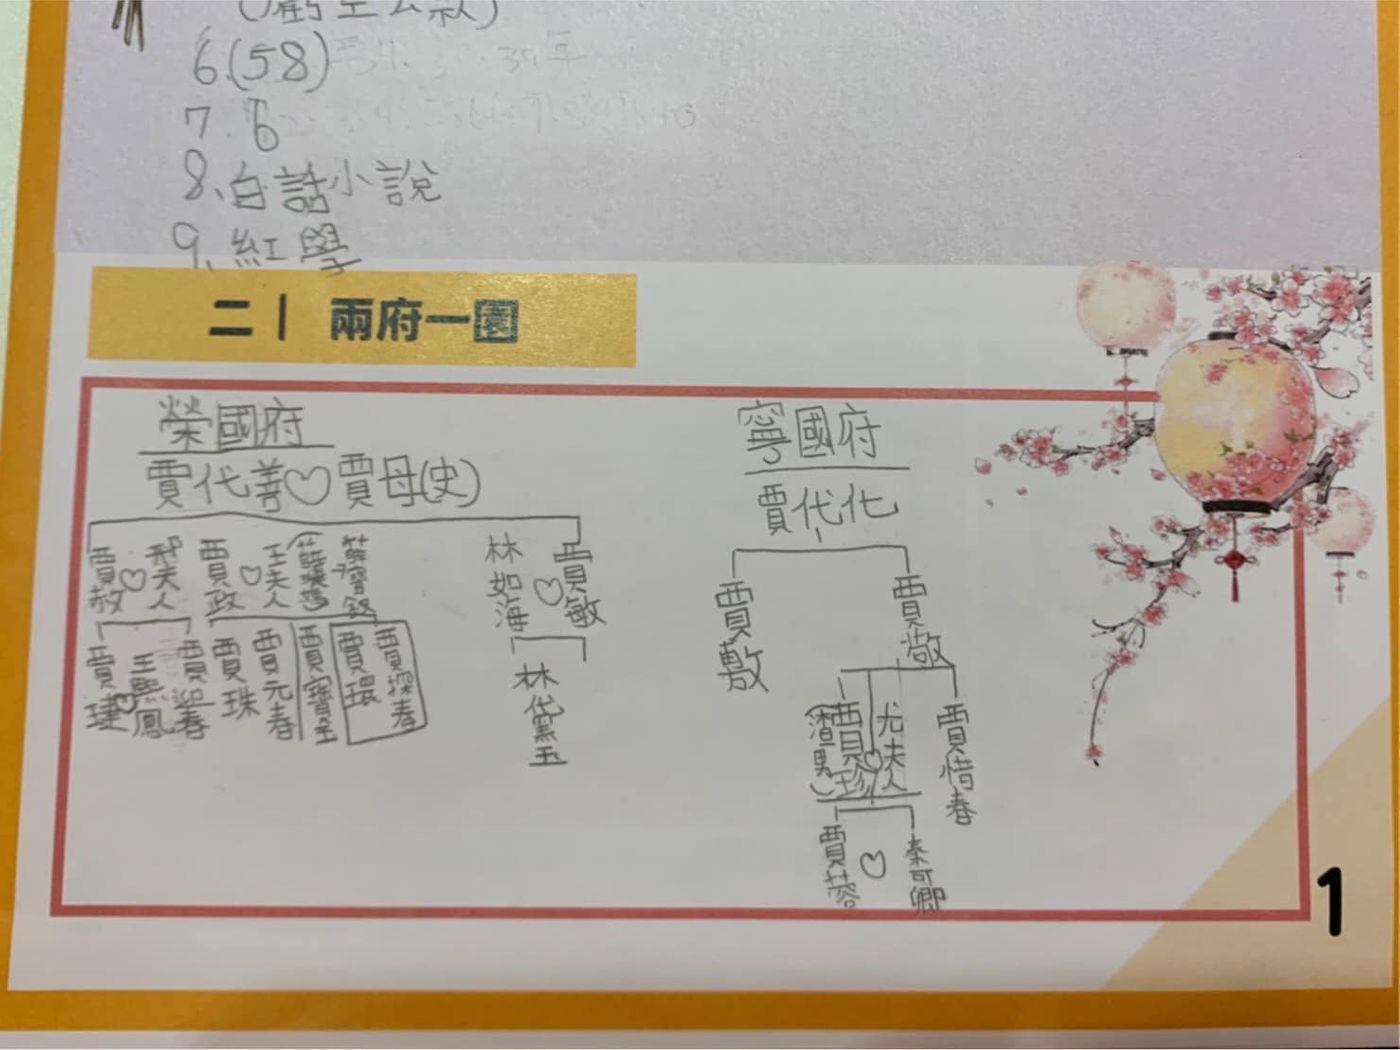 (虧空公款)
6.(58)
7.6
8、白話小說
9、紅學
二| 兩府一園
榮國府
賈代善♡賈母(史)
賈赦♡邢夫人
賈政♡王夫人
林如海♡賈敏
賈璉♡王熙鳳
賈迎春
賈珠
賈元春
賈寶玉
賈環
賈探春
林代黛玉
寧國府
賈代化
賈敷
賈敬
(渣男)賈珍♡尤夫人
賈惜春
賈蓉♡秦可卿
1